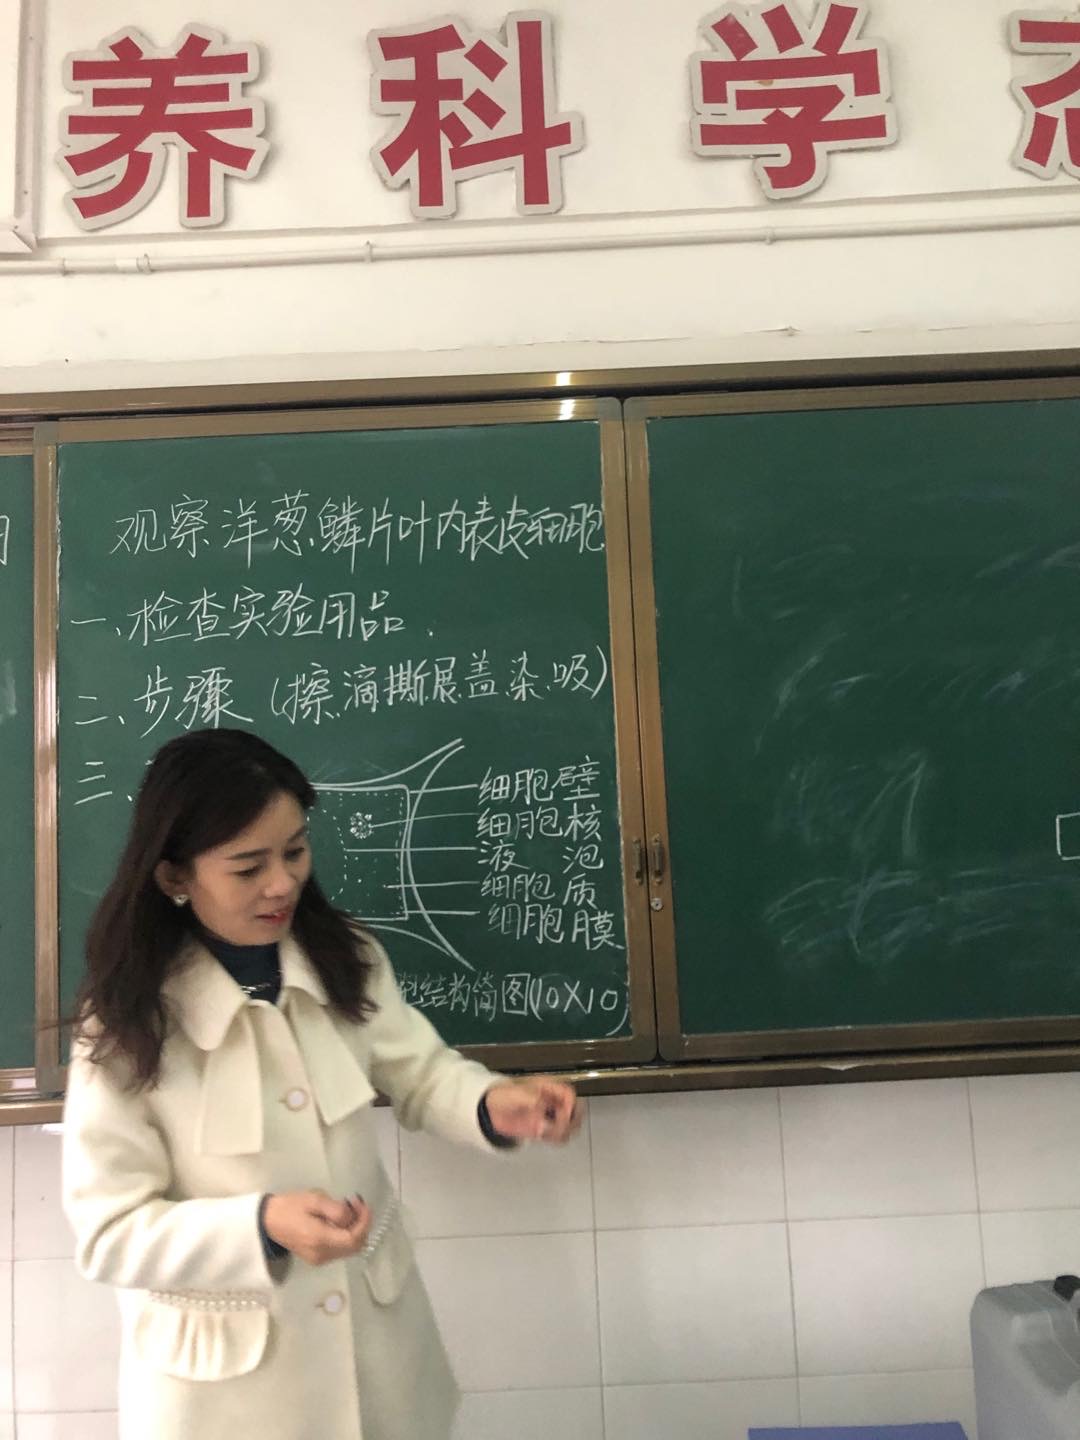 养科学
观察洋葱鳞片叶内表皮细胞
一、检查实验用品.
二、步骤(擦.滴.撕.展.盖.染.吸)
三、
细胞壁
细胞核
液泡
细胞质
细胞膜
胞结构简图(10X10)